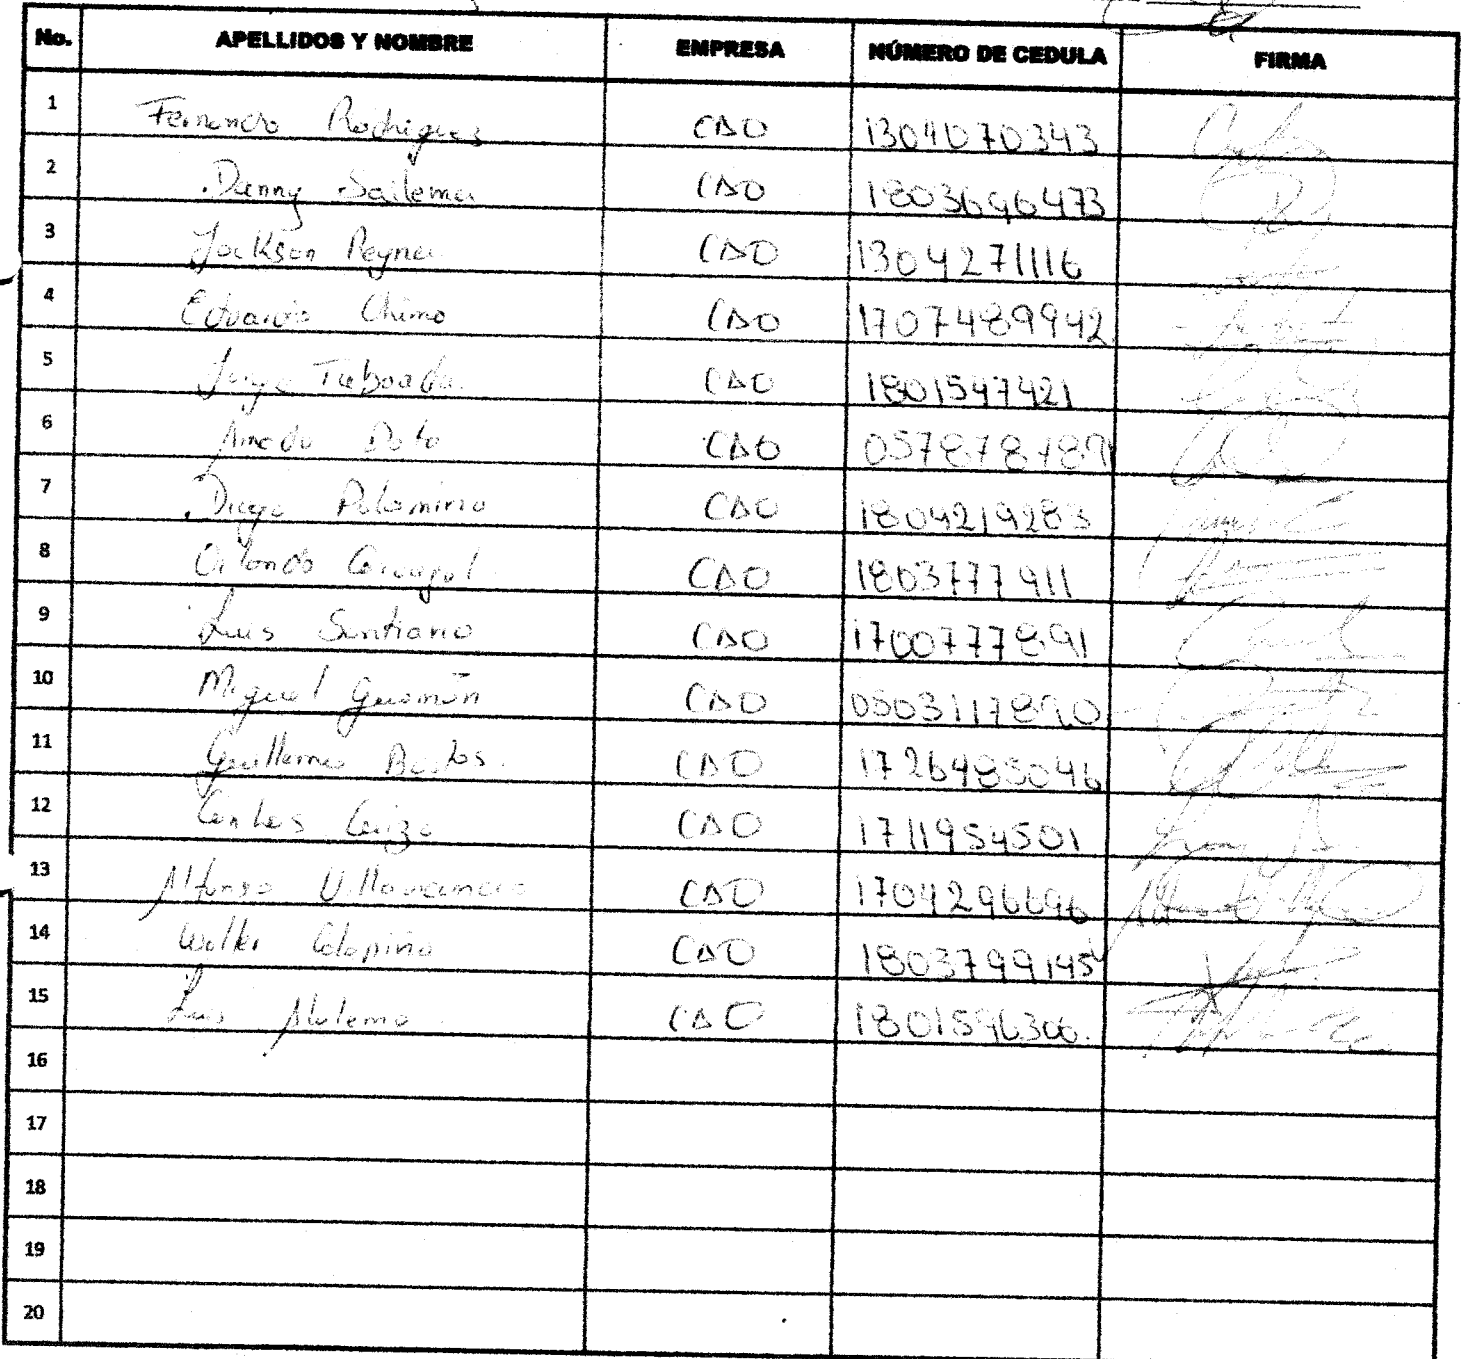 No. APELLIDOS Y NOMBRE EMPRESA NÚMERO DE CEDULA FIRMA
1 Fernando Rodriguez CAO 1304070343
2 Danny Sailema CAO 1803696473
3 Jackson Reyna CAO 1304271116
4 Eduardo Chimo CAO 1707489942
5 Jorge Taboada CAO 1801547421
6 CAO
7 Diego Palomino CAO 1804219283
8 Orlando Carvajal CAO 1803777911
9 Luis Santiano CAO 1700777891
10 Miguel Gusmán CAO 0503117890
11 Guillermo CAO 1726483046
12 Carlos CAO 1711954501
13 Alfonso Villavicencio CAO 1704296696
14 Walter CAO 1803799145
15 Luis CAO
16
17
18
19
20